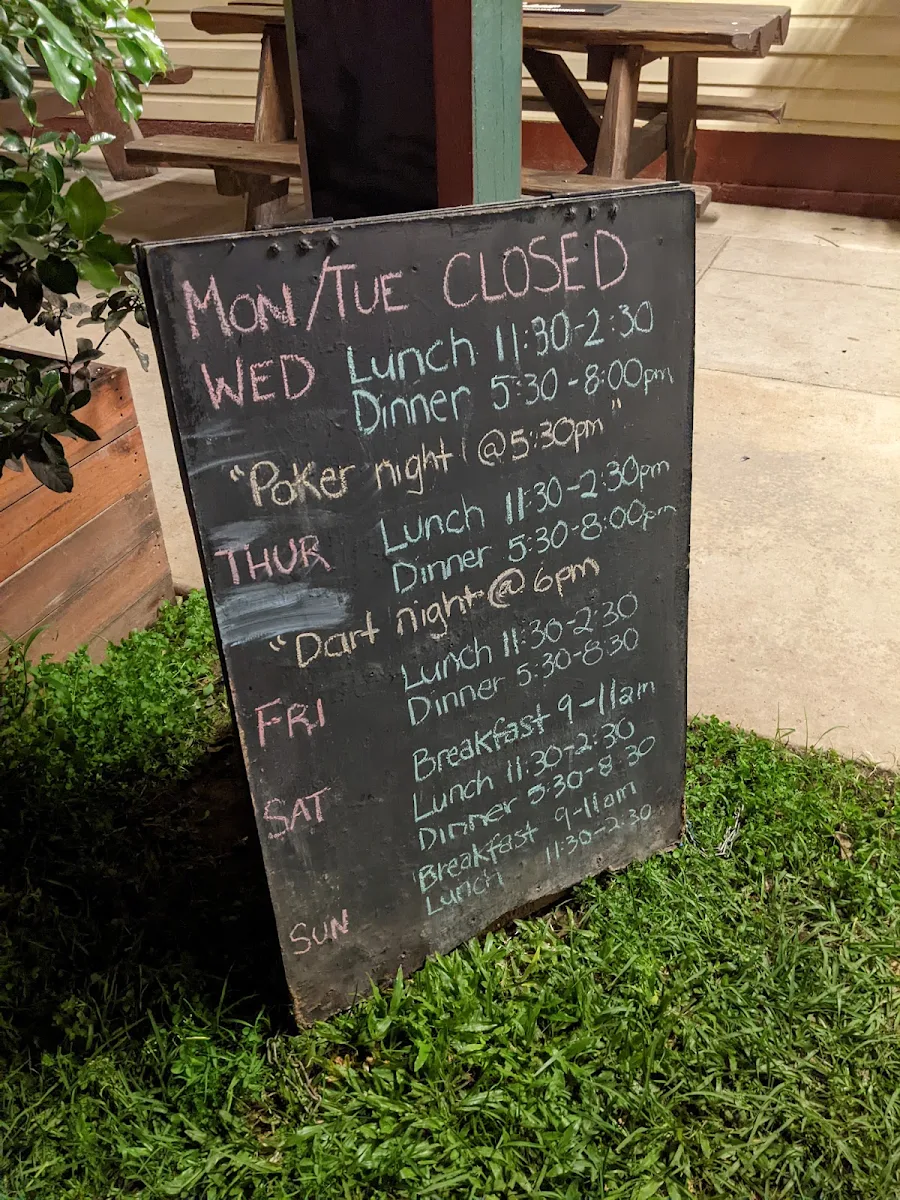 MON/TUE CLOSED
WED Lunch 11:30-2:30
Dinner 5:30-8:00pm
"Poker night @5:30pm"
THUR Lunch 11:30-2:30pm
Dinner 5:30-8:00pm
"Dart night @ 6pm
FRI Lunch 11:30-2:30
Dinner 5:30-8:30
SAT Breakfast 9-11am
Lunch 11:30-2:30
Dinner 5:30-8:30
SUN Breakfast 9-11am
Lunch 11:30-2:30